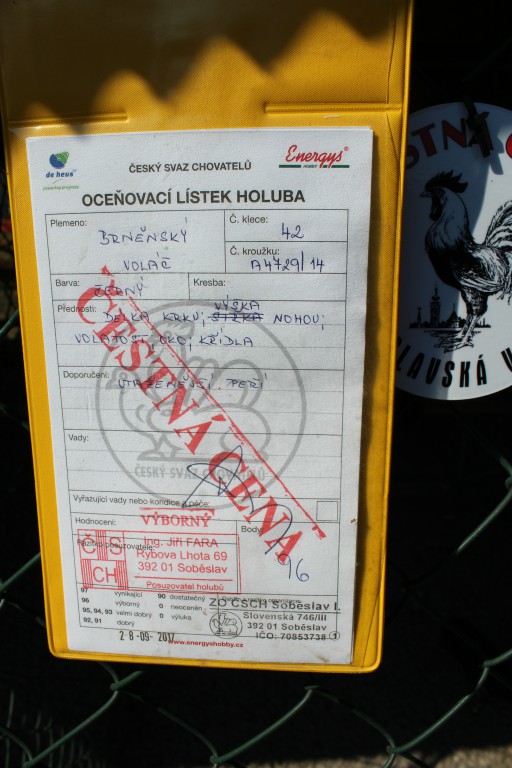 de heus
powering progress
ČESKÝ SVAZ CHOVATELŮ
Energys
HOBBY
OCEŇOVACÍ LÍSTEK HOLUBA
Plemeno:
BRNĚNSKÝ
VOLÁČ
Č. klece:
42
Č. kroužku:
A4729/14
Barva:
ČERNÝ
Kresba:
Přednosti:
VÝŠKA
DÉLKA KRKU, NOHOU,
VOLATOST, OKO, KŘÍDLA
Doporučení:
UTAŽENĚJŠÍ PEŘÍ
ČESTNÁ CENA
Vady:
ČESKÝ SVAZ CHOVATELŮ
Vyřazující vady nebo kondice a péče:
Hodnocení:
VÝBORNÝ
Body:
96
Razítko posuzovatele:
ČS
CH
Ing. Jiří FARA
Rybova Lhota 69
392 01 Soběslav
Posuzovatel holubů
97 vynikající 90 dostatečný
96 výborný 0 neoceněn
95, 94, 93 velmi dobrý 0 výluka
92, 91 dobrý
ZO ČSCH Soběslav I.
Slovenská 746/III
392 01 Soběslav
IČO: 70853738 1
28-09-2017
www.energyshobby.cz
STNÁ
LAVSKÁ